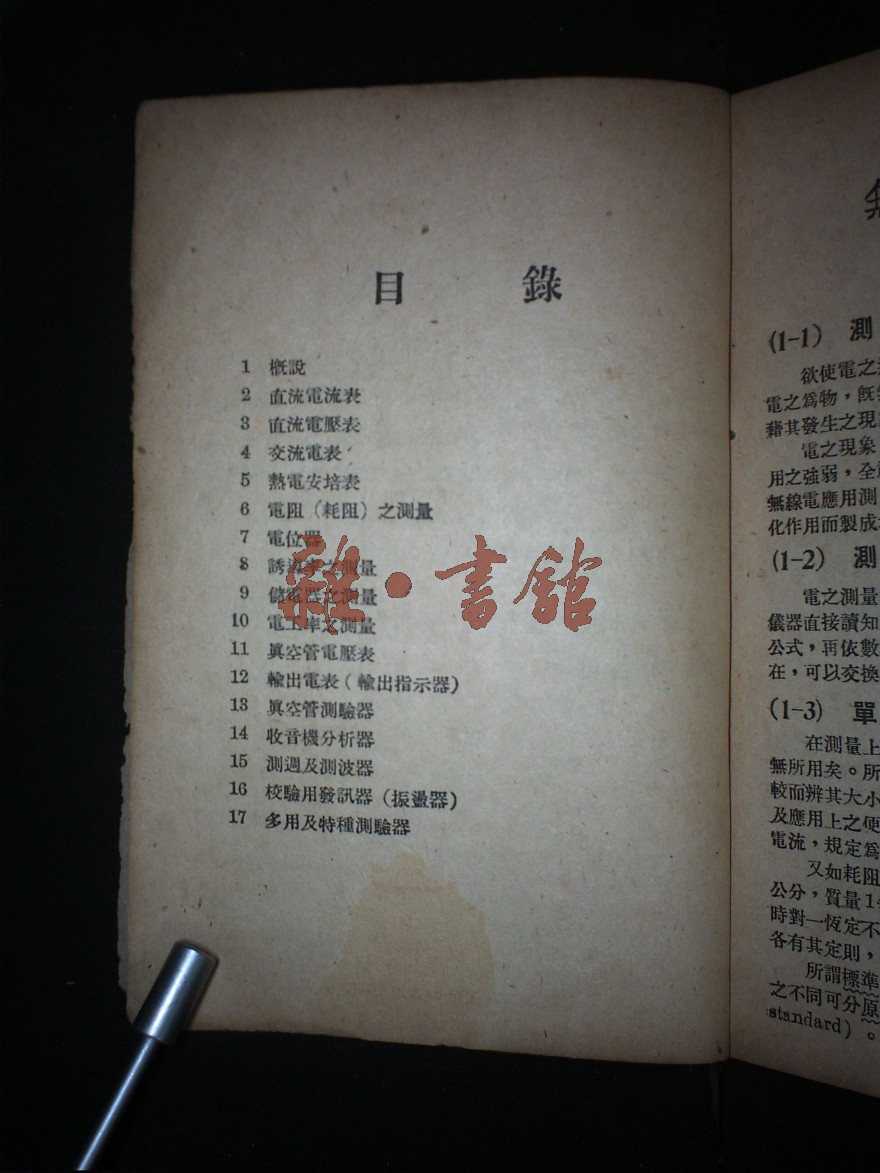 目 錄
1 概說
2 直流電流表
3 直流電壓表
4 交流電表
5 熱電安培表
6 電阻（耗阻）之測量
7 電位器
8 誘導率之測量
9 儲電器之測量
10 電工率之測量
11 眞空管電壓表
12 輸出電表（輸出指示器）
13 眞空管測驗器
14 收音機分析器
15 測週及測波器
16 校驗用發訊器（振盪器）
17 多用及特種測驗器
雜·書館
(1-1) 測
欲使電之
電之爲物，旣
藉其發生之現
電之現象
用之強弱，全
無線電應用測
化作用而製成
(1-2) 測
電之測量
儀器直接讀知
公式，再依數
在，可以交換
(1-3) 單
在測量上
無所用矣。所
較而辨其大小
及應用上之便
電流，規定爲
又如耗阻
公分，質量14
時對一恆定不
各有其定則，
所謂標準
之不同可分原
standard）。